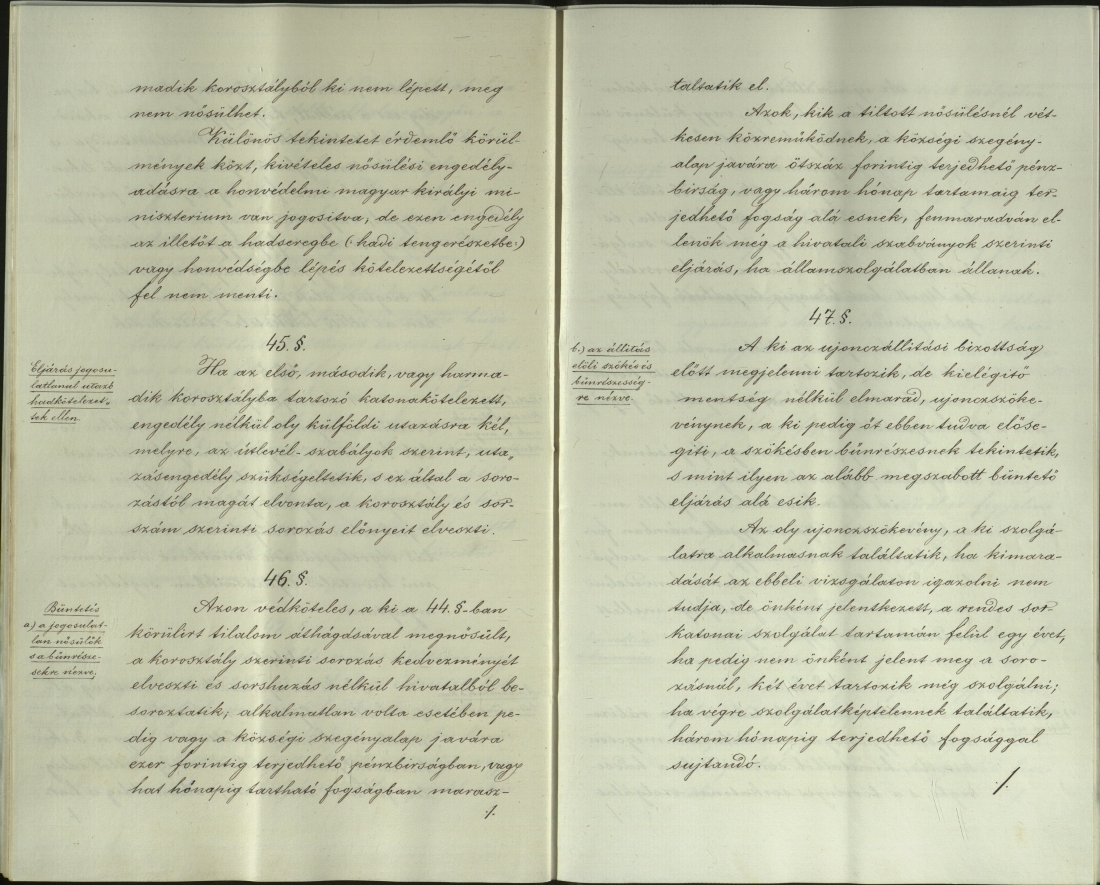 madik korosztályból ki nem lépett, meg
nem nősülhet.
Különös tekintetet érdemlő körül-
mények közt, kivételes nősülési engedély-
adásra a honvédelmi magyar királyi mi-
niszterium van jogositva, de ezen engedély
az illetőt a hadseregbe (:hadi tengerészetbe:)
vagy honvédségbe lépés kötelezettségétől
fel nem menti.
45. §.
Eljárás jogosu-
latlanul utazó
hadkötelezet-
tek ellen.
Ha az első, második, vagy harma-
dik korosztályba tartozó katonakötelezett,
engedély nélkül oly külföldi utazásra kél,
melyre, az útlevél-szabályok szerint, uta-
zásengedély szükségeltetik, s ez által a soro-
zástól magát elvonta, a korosztály és sor-
szám szerinti sorozás előnyeit elveszti.
46. §.
Büntetés
a.) a jogosulat-
lan nősülők
s a bünrésze-
sekre nézve,
Azon védköteles, a ki a 44. §-ban
körülirt tilalom áthágásával megnősült,
a korosztály szerinti sorozás kedvezményét
elveszti és sorshuzás nélkül hivatalból be-
soroztatik; alkalmatlan volta esetében pe-
dig vagy a községi szegényalap javára
ezer forintig terjedhető pénzbirságban, vagy
hat hónapig tartható fogságban marasz-
./.
taltatik el.
Azok, kik a tiltott nősülésnél vét-
kesen közreműködnek, a községi szegény-
alap javára ötszáz forintig terjedhető pénz-
birság, vagy három hónap tartamaig ter-
jedhető fogság alá esnek, fenmaradván el-
lenök még a hivatali szabványok szerinti
eljárás, ha államszolgálatban állanak.
47. §.
b.) az állitás
előli szökés és
bünrészesség-
re nézve.
A ki az ujonczállitási bizottság
előtt megjelenni tartozik, de kielégitő
mentség nélkül elmarad, ujonczszöke-
vénynek, a ki pedig őt ebben tudva előse-
giti, a szökésben bünrészesnek tekintetik,
s mint ilyen az alább megszabott büntető
eljárás alá esik.
Az oly ujonczszökevény, a ki szolgá-
latra alkalmasnak találtatik, ha kimara-
dását az ebbeli vizsgálaton igazolni nem
tudja, de önként jelentkezett, a rendes sor-
katonai szolgálat tartamán felül egy évet,
ha pedig nem önként jelent meg a soro-
zásnál, két évet tartozik még szolgálni;
ha végre szolgálatképtelennek találtatik,
három hónapig terjedhető fogsággal
sujtandó.
./.